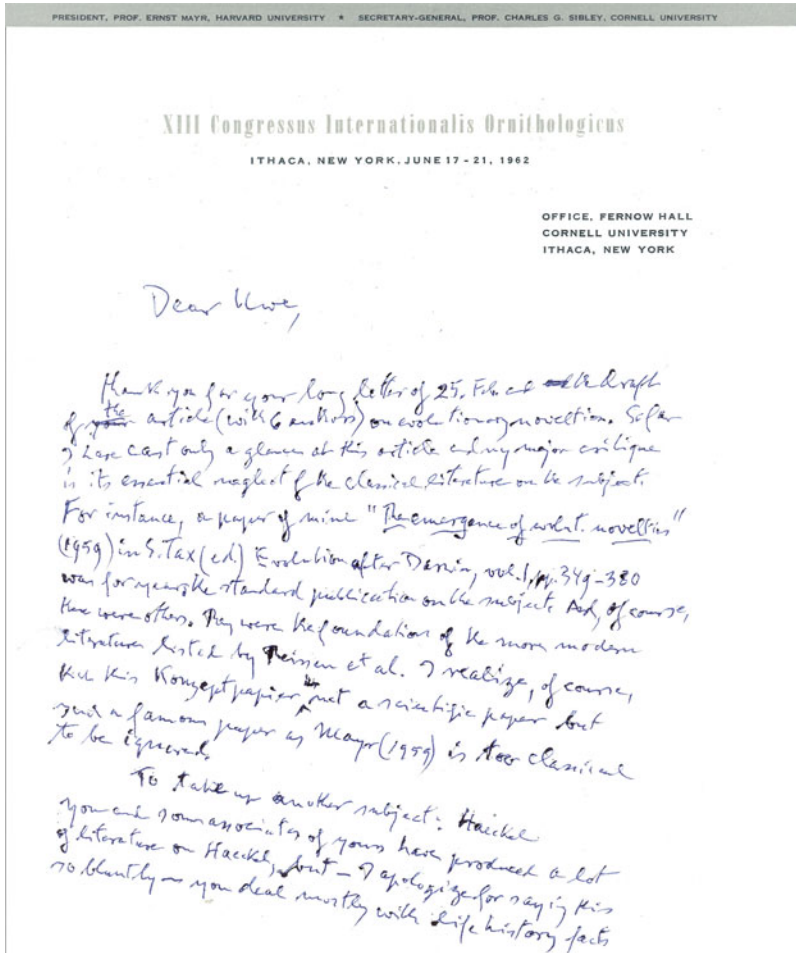 PRESIDENT, PROF. ERNST MAYR, HARVARD UNIVERSITY ★ SECRETARY-GENERAL, PROF. CHARLES G. SIBLEY, CORNELL UNIVERSITY
XIII Congressus Internationalis Ornithologicus
ITHACA, NEW YORK, JUNE 17 - 21, 1962
OFFICE, FERNOW HALL
CORNELL UNIVERSITY
ITHACA, NEW YORK
Dear Uwe,
Thank you for your long letter of 25. Feb. and the draft
of the article (with 6 authors) on evolutionary novelties. So far
I have cast only a glance at this article and my major critique
is its essential neglect of the classical literature on the subject.
For instance, a paper of mine "The emergence of evolut. novelties"
(1959) in S. Tax (ed.) Evolution after Darwin, vol. 1, pp. 349-380
was for years the standard publication on the subject. And, of course,
there were others. They were the foundation of the more modern
literature listed by et al. I realize, of course,
that this Konzeptpapier is not a scientific paper but
such a famous paper as Mayr (1959) is too classical
to be ignored.
To take up another subject: Haeckel
you and some associates of yours have produced a lot
of literature on Haeckel, but – I apologize for saying this
so bluntly – you deal mostly with life history facts